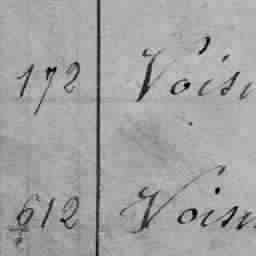 172 Voisi
612 Voisi